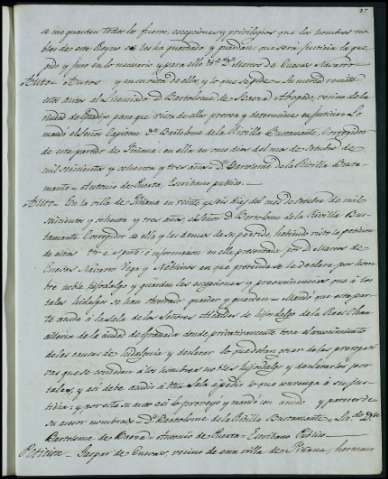 37
se me guarden todas las franc. exenpciones y privilegios que los hombres no-
bles de estos Reynos se les ha guardado y guardan, que sera Justicia la que
pido y juro en lo necesario y para ello Dn. Marcos de Cuevas Navarro
Auto- Autos y en vista de ellos y lo que se pide su merced remitio
estos autos al Licenciado D. Bartolome de Baena Abogado, vecino de la
ciudad de para que vista de ellos provea y determine en justicia. Lo
mandó el señor Capitan Dn. Bartolome de la Rivilla Bustamante, Corregidor
de este partido de en ella en once dias del mes de Octubre de
mil seiscientos y ochenta y tres años. Dn. Bartolome de la Rivilla Busta-
mante- Antonio de Huerta, Escribano publico.
Auto. En la villa de en veinte y seis dias del mes de octubre de mil
seiscientos y ochenta y tres años el señor D. Bartolome de la Rivilla Bus-
tamante Corregidor de ella y los demas de su partido, habiendo visto la peticion
de estos é informacion en ella presentada por D. Marcos de
Cuevas Navarro Vega y en que pretende se le declare por hom-
bre noble hijodalgo y guarden las exenpciones y preeminencias que á los
tales hidalgos se han guardado, guardan y pueden = Mandó que esta par-
te acuda á la sala de los Señores Alcaldes de hijosdalgo de la Real Chan-
cilleria de la ciudad de Granada donde privativamente toca el conocimiento
de las causas de hidalguia y declarar lo que deben gozar de las preroga-
tivas que se conceden á los hombres nobles hijosdalgo y declararlos por
tales, y asi debe acudir á dicha Sala á pedir lo que convenga á su jus-
ticia: y por este su auto asi lo proveyó y mandó con acuerdo y parecer de
su asesor nombrado= Dn. Bartolome de la Rivilla Bustamante. Lic. Dn.
Bartolome de Baena= Antonio de Huerta= Escribano Publico
Peticion= Gaspar de Cuevas, vecino de esta villa de hermano